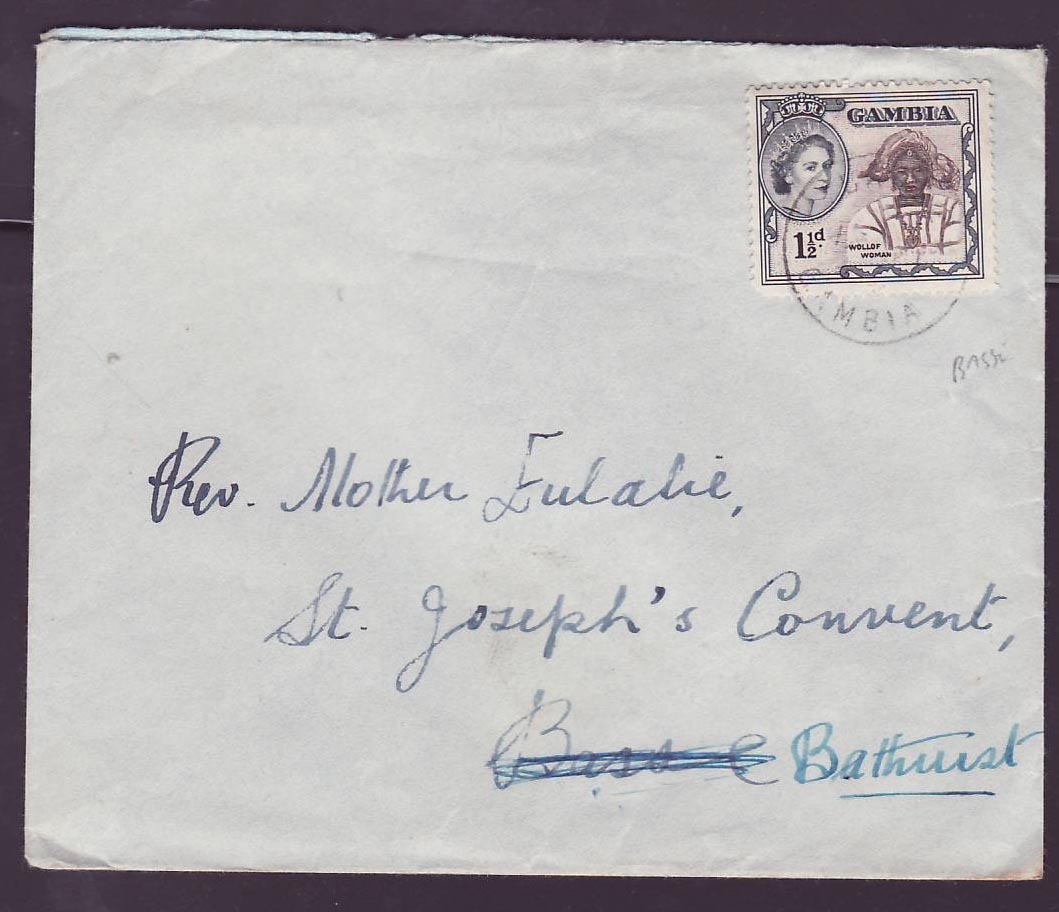 GAMBIA
1½d.
WOLLOF
WOMAN
GAMBIA
Rev. Mother Eulalie,
St. Joseph's Convent,
Basse Bathurst